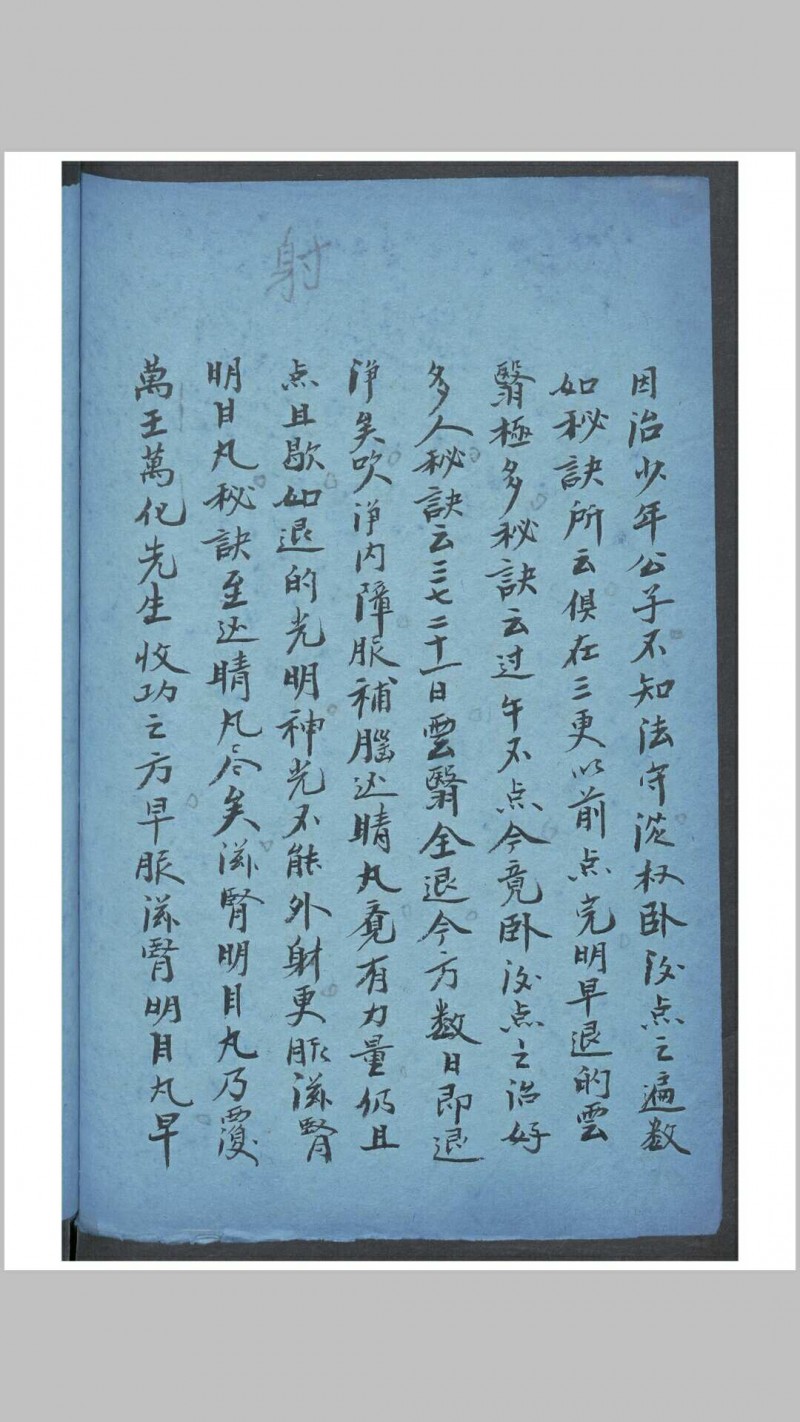 射
因治少年公子不知法守從权卧後点之遍数
如秘訣所云俱在三更以前点完明早退的雲
翳極多秘訣云过午不点今竟卧後点之治好
多人秘訣云三七二十一日雲翳全退今方数日即退
净矣吹净内障服補腦还睛丸竟有力量仍且
点且歇如退的光明神光不能外射更服滋腎
明目丸秘訣至还睛丸尽矣滋腎明目丸乃覆
萬王萬化先生收功之方早服滋腎明目丸早